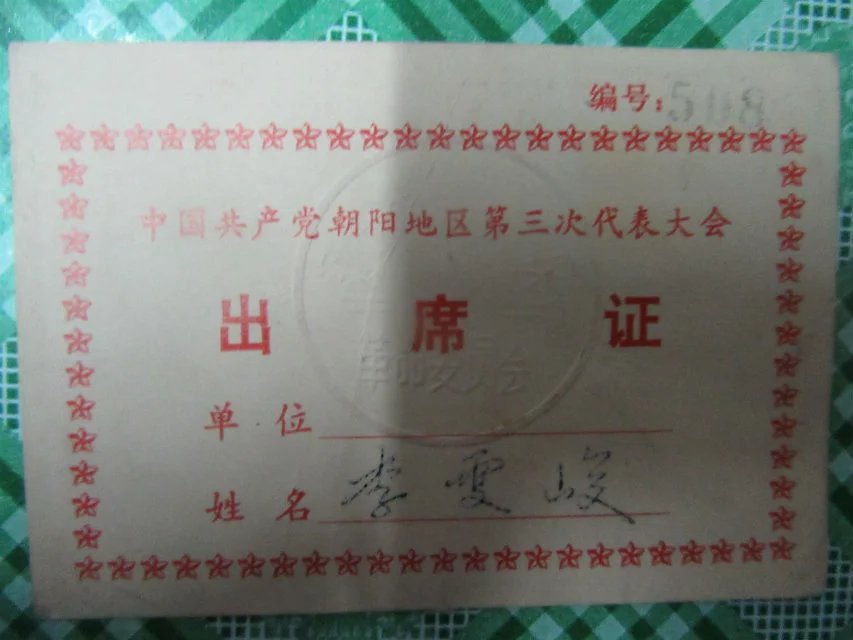 编号：508
中国共产党朝阳地区第三次代表大会
出席证
单位
姓名 李雯峻
革命委员会